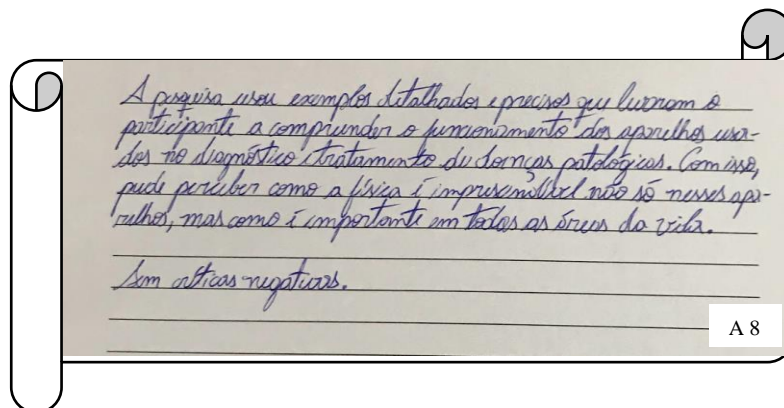 A pesquisa usou exemplos detalhados e precisos que levaram o
participante a compreender o funcionamento dos aparelhos usa-
dos no diagnóstico e tratamento de doenças patológicas. Com isso,
pude perceber como a física é imprescindível não só nesses apa-
relhos, mas como é importante em todas as áreas da vida.
Sem críticas negativas.
A 8